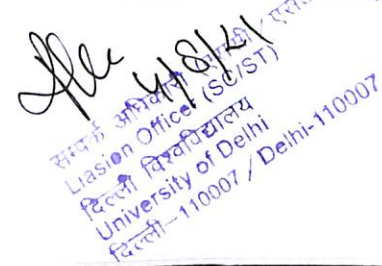 4/8/21
सम्पर्क अधिकारी
Liasion Officer (SC/ST)
दिल्ली विश्वविद्यालय
University of Delhi
दिल्ली-110007 / Delhi-110007